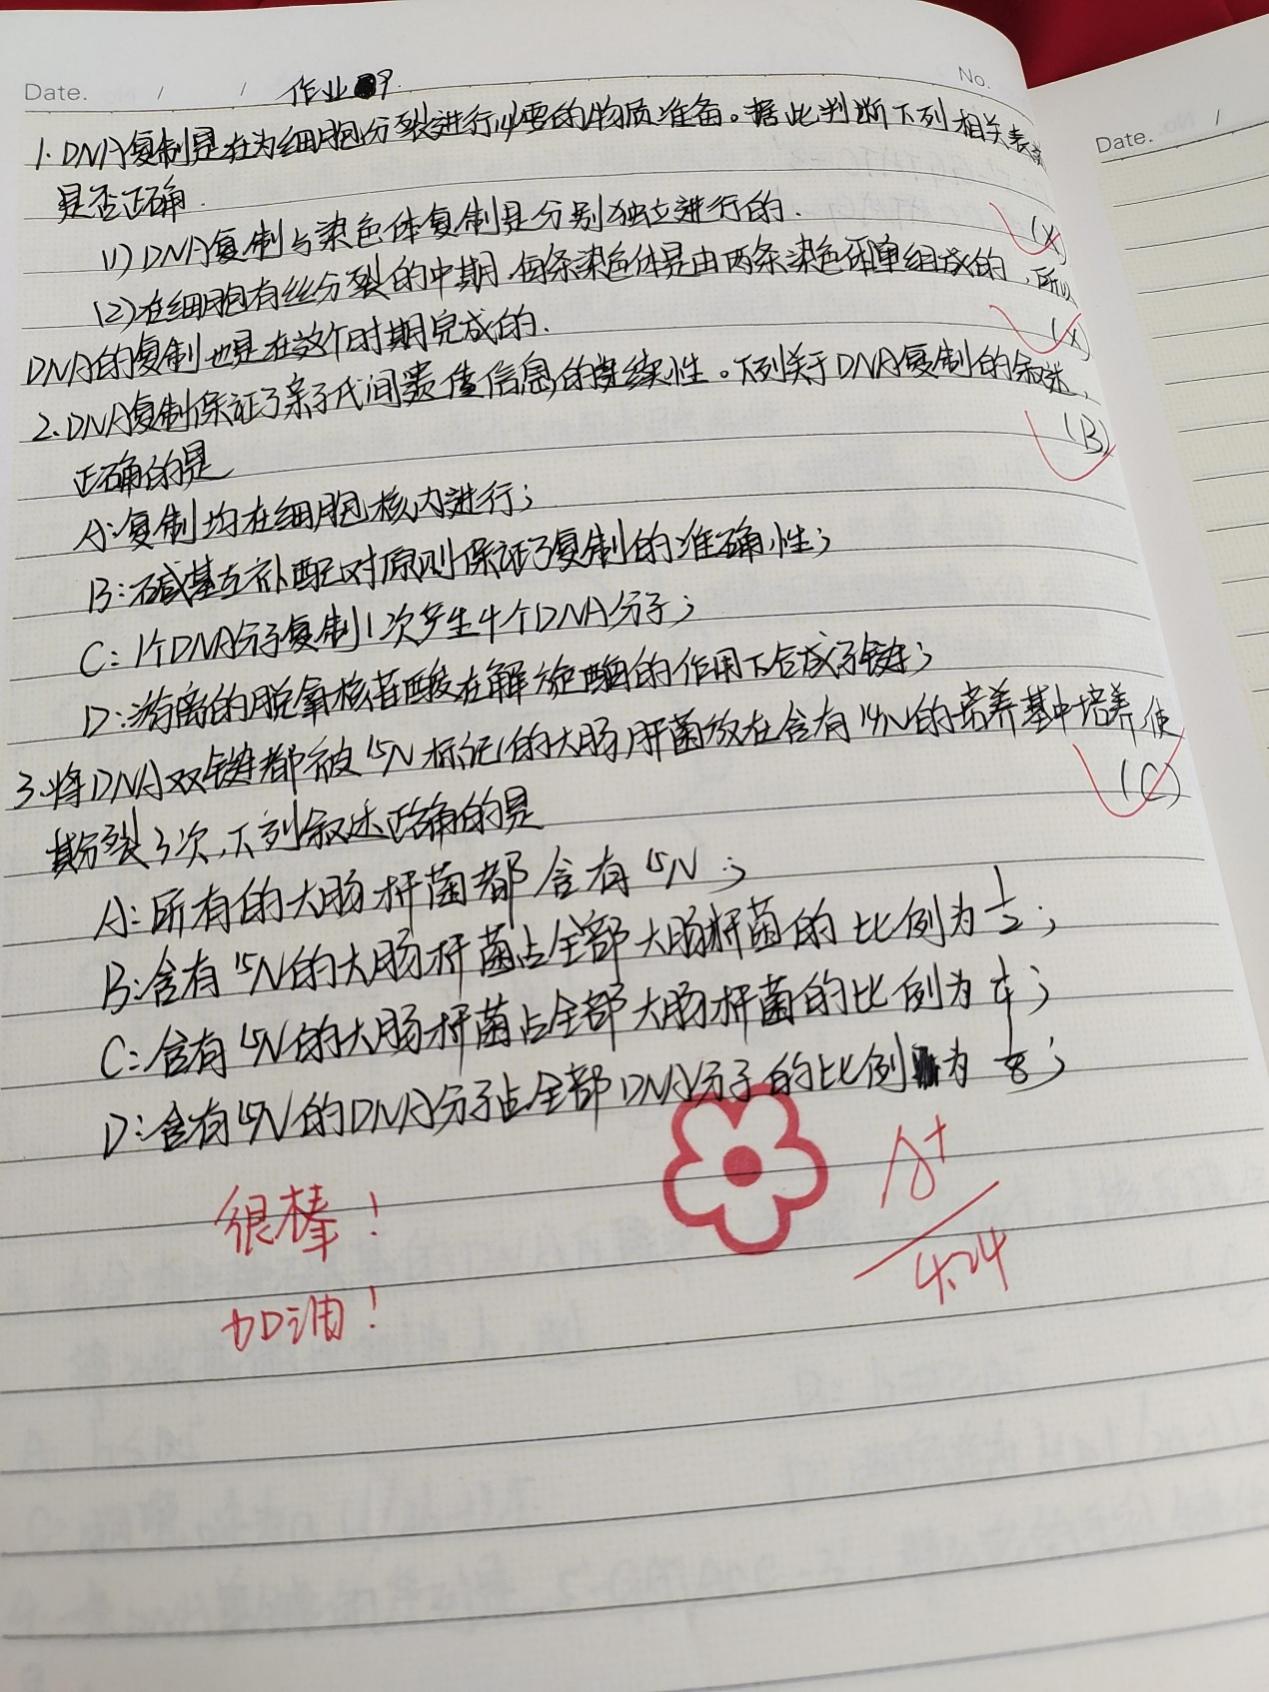 Date. / / 作业9. No.
Date. /
1. DNA复制是在为细胞分裂进行必要的物质准备。据此判断下列相关表述
是否正确.
(1) DNA复制与染色体复制是分别独立进行的. (X)
(2) 在细胞有丝分裂的中期,每条染色体是由两条染色单体组成的,所以
DNA的复制也是在这个时期完成的. (X)
2. DNA复制保证了亲子代间遗传信息的连续性。下列关于DNA复制的叙述,
正确的是 (B)
A: 复制均在细胞核内进行;
B: 碱基互补配对原则保证了复制的准确性;
C: 1个DNA分子复制1次产生4个DNA分子;
D: 游离的脱氧核苷酸在解旋酶的作用下合成子链;
3. 将DNA双链都被15N标记的大肠杆菌放在含有14N的培养基中培养,使
其分裂3次,下列叙述正确的是 (C)
A: 所有的大肠杆菌都含有15N;
B: 含有15N的大肠杆菌占全部大肠杆菌的比例为1/2;
C: 含有15N的大肠杆菌占全部大肠杆菌的比例为1/4;
D: 含有15N的DNA分子占全部DNA分子的比例为1/8;
很棒!
A+
4.24
加油!